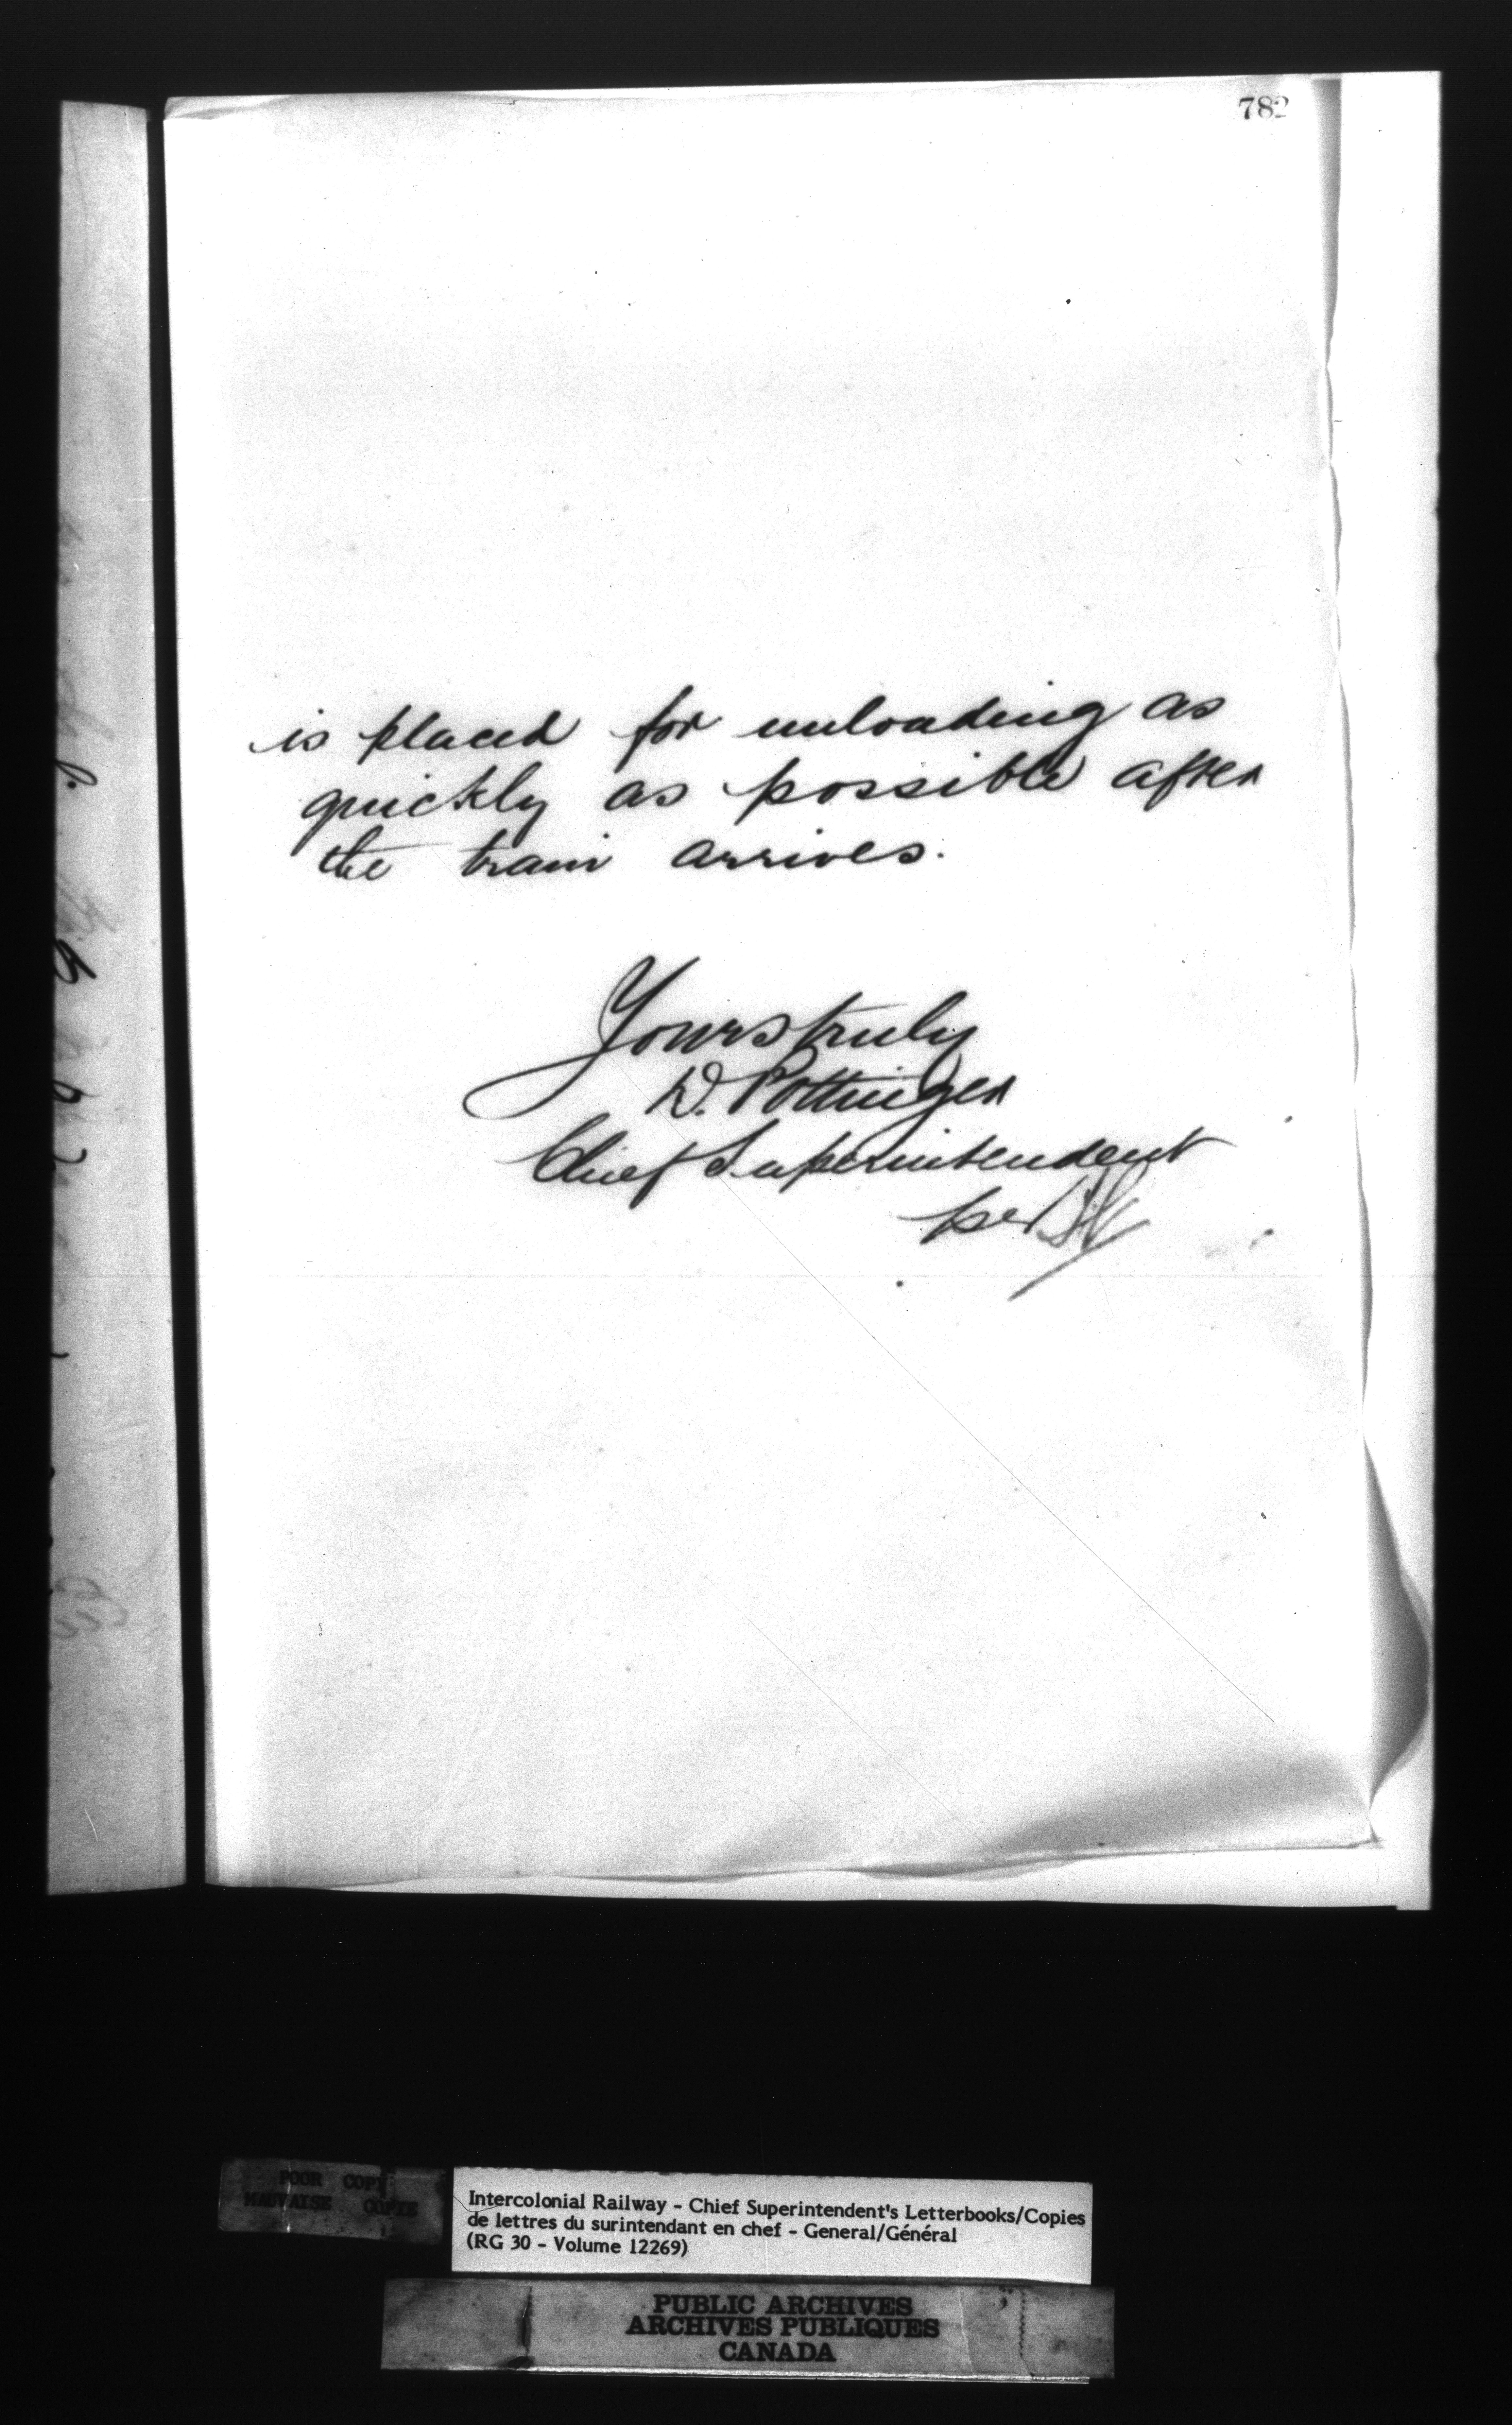 782
is placed for unloading as
quickly as possible after
the train arrives.
Yours truly
D. Pottinger
Chief Superintendent
per
POOR COPY
MAUVAISE COPIE
Intercolonial Railway - Chief Superintendent's Letterbooks/Copies
de lettres du surintendant en chef - General/Général
(RG 30 - Volume 12269)
PUBLIC ARCHIVES
ARCHIVES PUBLIQUES
CANADA